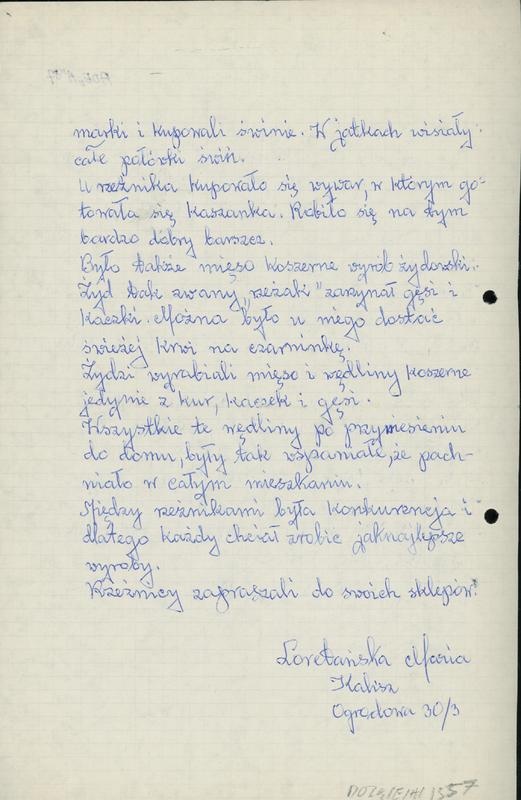 marki i kupowali świnie. W jatkach wisiały
całe połówki świń.
U rzeźnika kupowało się wywar, w którym go-
towała się kaszanka. Robiło się na tym
bardzo dobry barszcz.
Było także mięso koszerne wyrób żydowski.
Żyd tak zwany „rzezak" zarzynał gęsi i
kaczki. Można było u niego dostać
świeżej krwi na czarninkę.
Żydzi wyrabiali mięso i wędliny koszerne
jedynie z kur, kaczek i gęsi.
Wszystkie te wędliny po przyniesieniu
do domu, były tak wspaniałe, że pach-
niało w całym mieszkaniu.
Między rzeźnikami była konkurencja i
dlatego każdy chciał zrobić jaknajlepsze
wyroby.
Rzeźnicy zapraszali do swoich sklepów.
Loretańska Maria
Kalisz
Ogrodowa 30/3
57